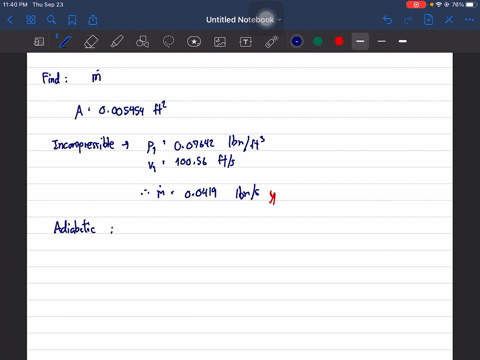 11:40 PM Thu Sep 23
76%
Untitled Notebook
Find : ṁ
A = 0.005454 ft²
Incompressible → ρ₁ = 0.07642 lbm/ft³
V₁ = 100.56 ft/s
∴ ṁ = 0.0419 lbm/s
Adiabatic :